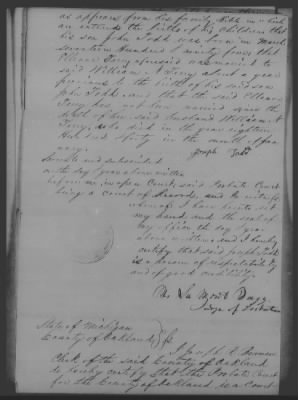 as appears from his family Bible in which
are entered the births of his children that
his son John Todd was born in March
seventeen Hundred & ninety four that
Terry aforesaid was married to
said William Terry about a year
previous to the birth of his said son
John Todd, and that the said
Terry has not been married since the
death of her said husband William
Terry, who died in the year eighteen
Hundred & forty in the month of
Joseph Todd
Sworn and subscribed
on the day & year above written
before me, in open Court, said Probate Court
being a court of Record, and in witness
whereof I have hereto set
my hand, and the seal of
my office the day & year
above written, and I hereby
certify that said Joseph Todd
is a person of respectability
and of good credibility
M. La Mont Bagg
Judge of Probate
State of Michigan
County of Oakland } ss
I Joseph R. Bowman
Clerk of the said County of Oakland
do hereby certify that the Probate Court
for the County of Oakland is a Court